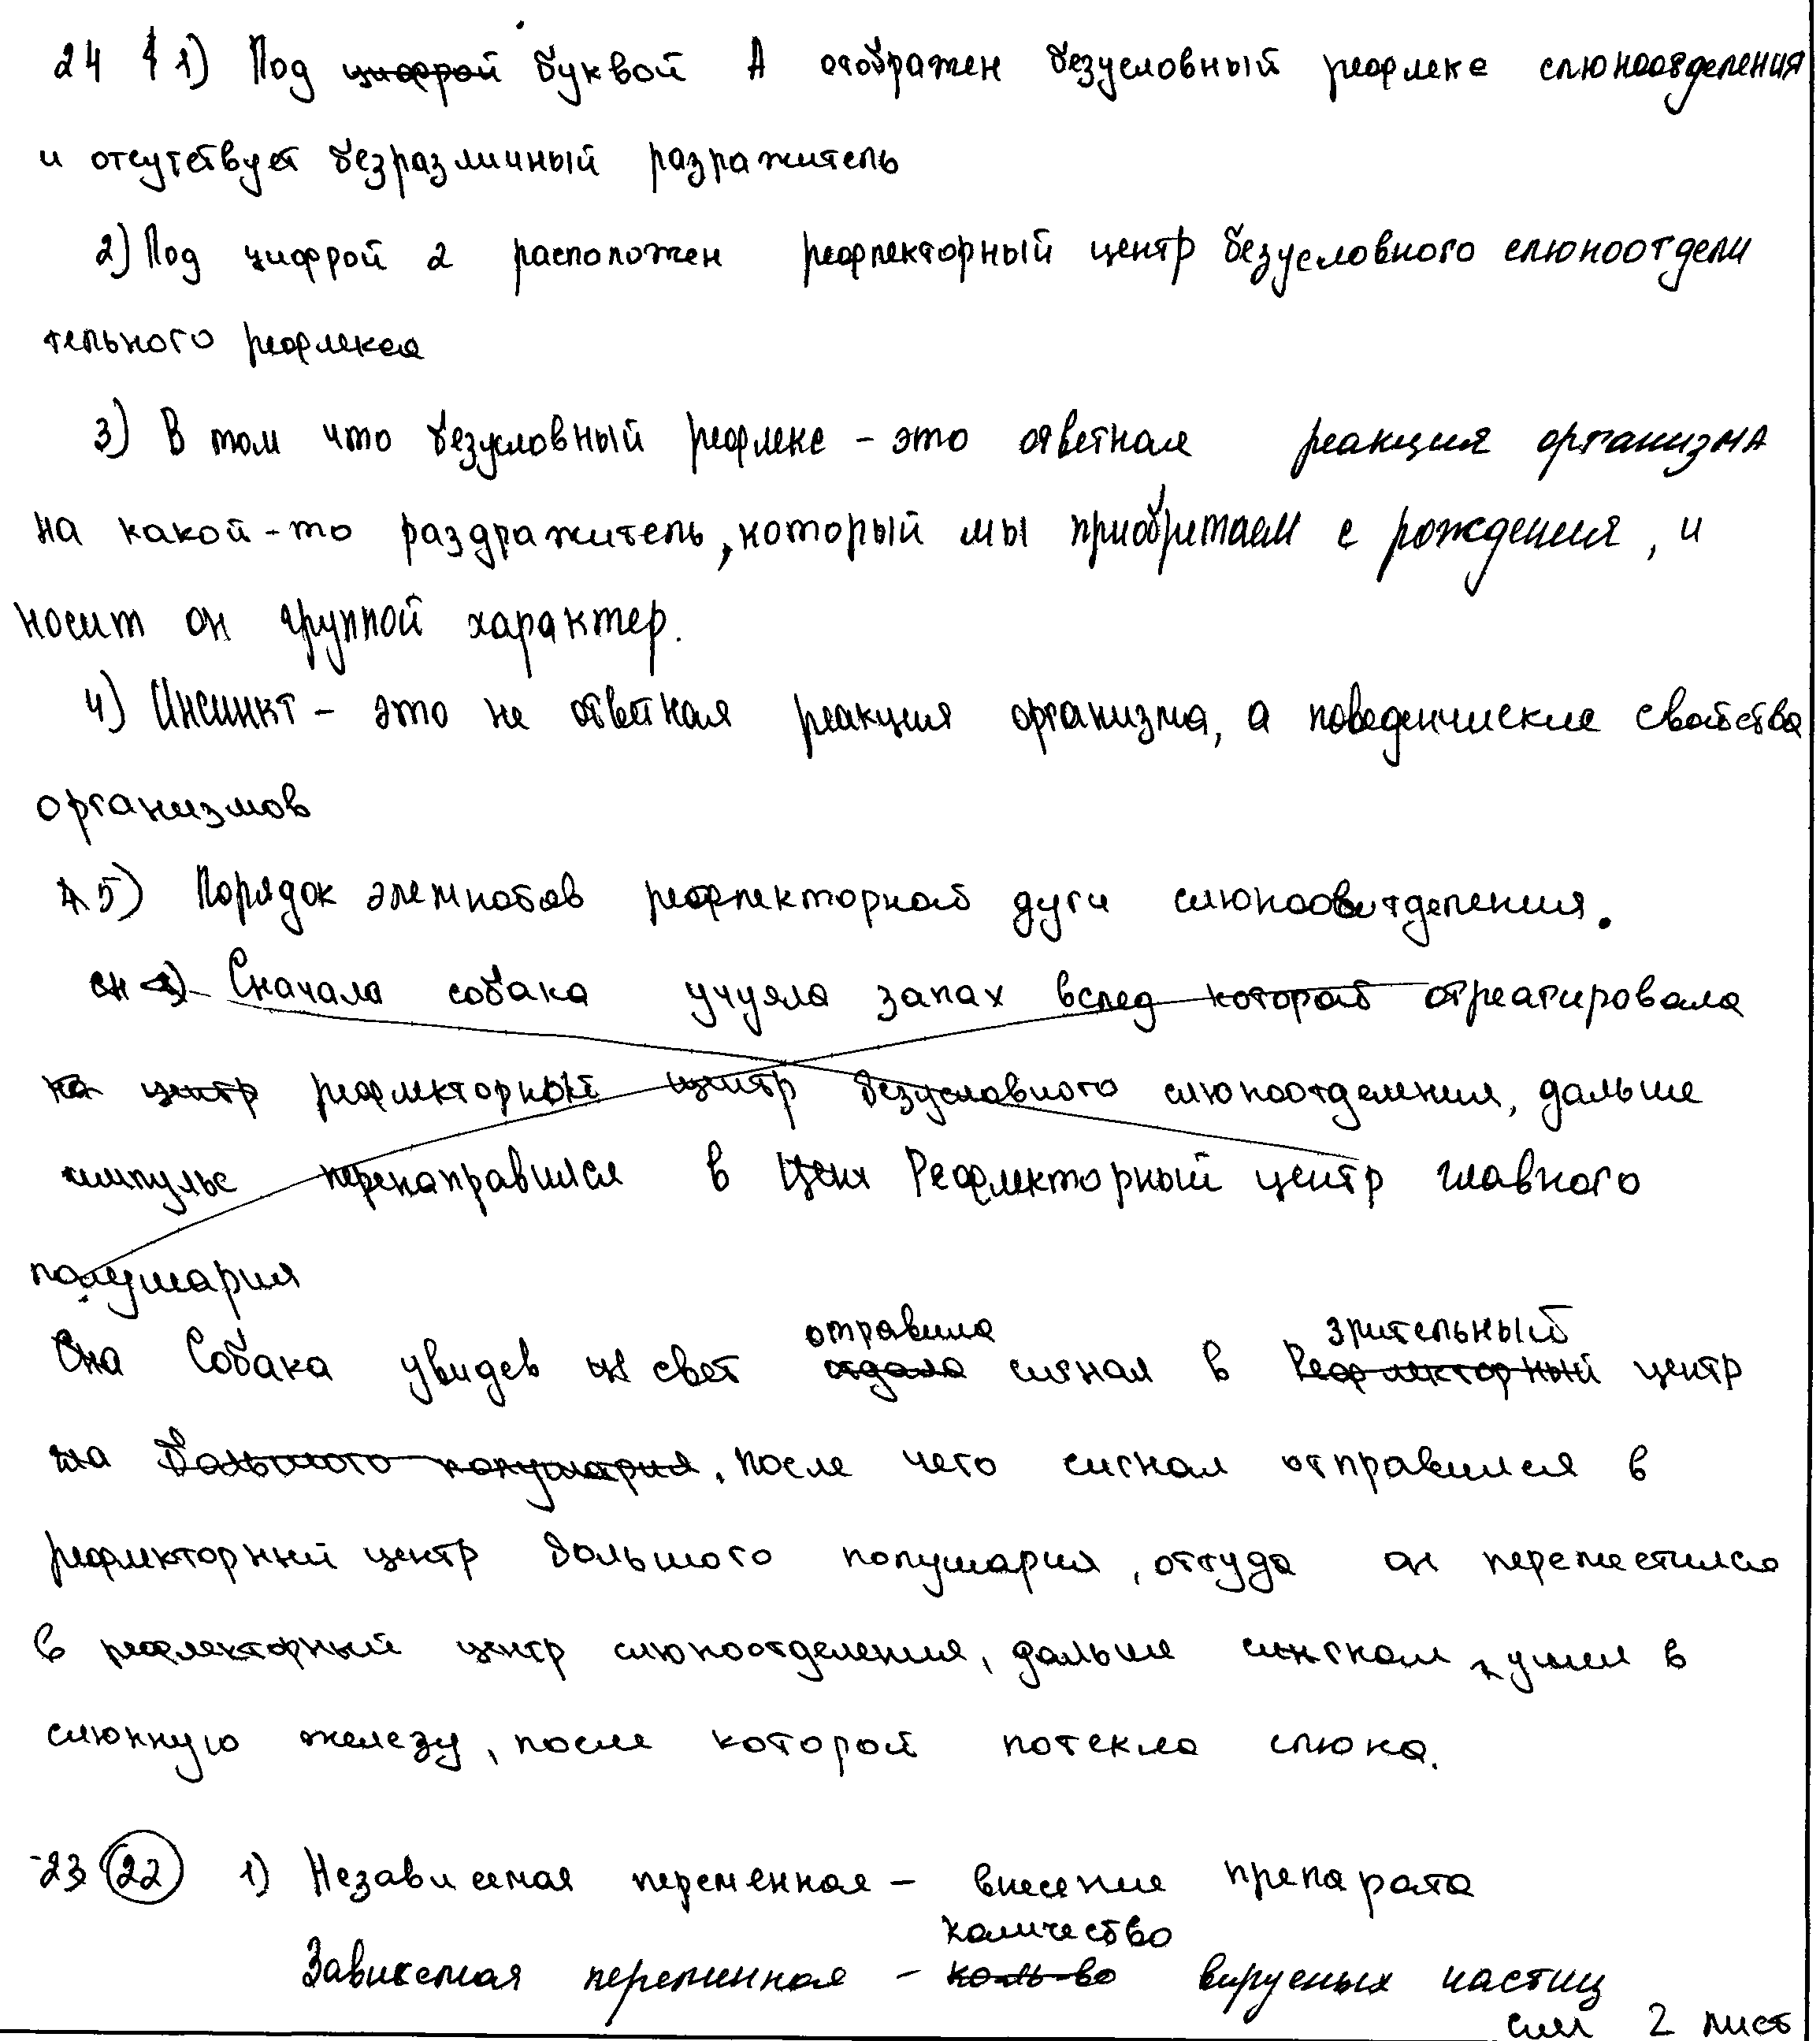 24 1) Под цифрой буквой А отображен безусловный рефлекс слюноотделения
и отсутствует безразличный разражитель
2) Под цифрой 2 расположен рефлекторный центр безусловного слюноотдели
тельного рефлекса
3) В том что безусловный рефлекс - это ответная реакция организма
на какой-то раздражитель, который мы приобретаем с рождения, и
носит он группой характер.
4) Инсинкт - это не ответная реакция организма, а поведенчиские свойства
организмов
5) Порядок рефлекторной дуги
Сначала собака учуяла запах вслед которой отреагировала
на центр рефлекторный центр безусловного слюноотделения, дальше
импульс перенаправился в Рефлекторный центр главного
полушария
Собака увидев свет отдала отправила сигнал в Рефлекторный зрительный центр
большого полушария, после чего сигнал отправился в
рефлекторный центр большого полушария, откуда он переместился
в рефлекторный центр слюноотделения, дальше ушел в
слюнную железу, после которой потекла слюна.
23 22 1) Независимая переменная - внесение препарата
Зависемая переменная - коль-во количество вирусных частиц
см 2 лист